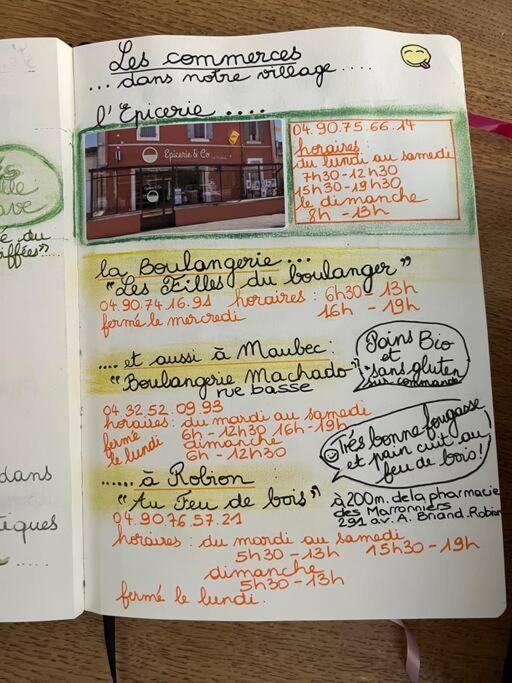 Les commerces
... dans notre village ....
l'Epicerie ....
Epicerie & Co
04.90.75.66.14
horaires :
du lundi au samedi
7h30-12h30
15h30-19h30
le dimanche
8h - 13h
la Boulangerie ...
"Les Filles du boulanger"
04.90.74.16.91 horaires : 6h30 - 13h
fermé le mercredi 16h - 19h
.... et aussi à Maubec :
"Boulangerie Machado"
rue basse
Pains Bio
et
sans gluten
sur commande
04.32.52.09.93
horaires : du mardi au samedi
6h - 12h30 16h - 19h
fermé
le lundi
dimanche
6h - 12h30
Très bonne fougasse
et pain cuit au
feu de bois !
...... à Robion
"Au Feu de bois"
à 200m. de la pharmacie
des Marronniers
291 av. A. Briand. Robion
04.90.76.57.21
horaires : du mardi au samedi
5h30 - 13h 15h30 - 19h
dimanche
5h30 - 13h
fermé le lundi.
dans
tiques